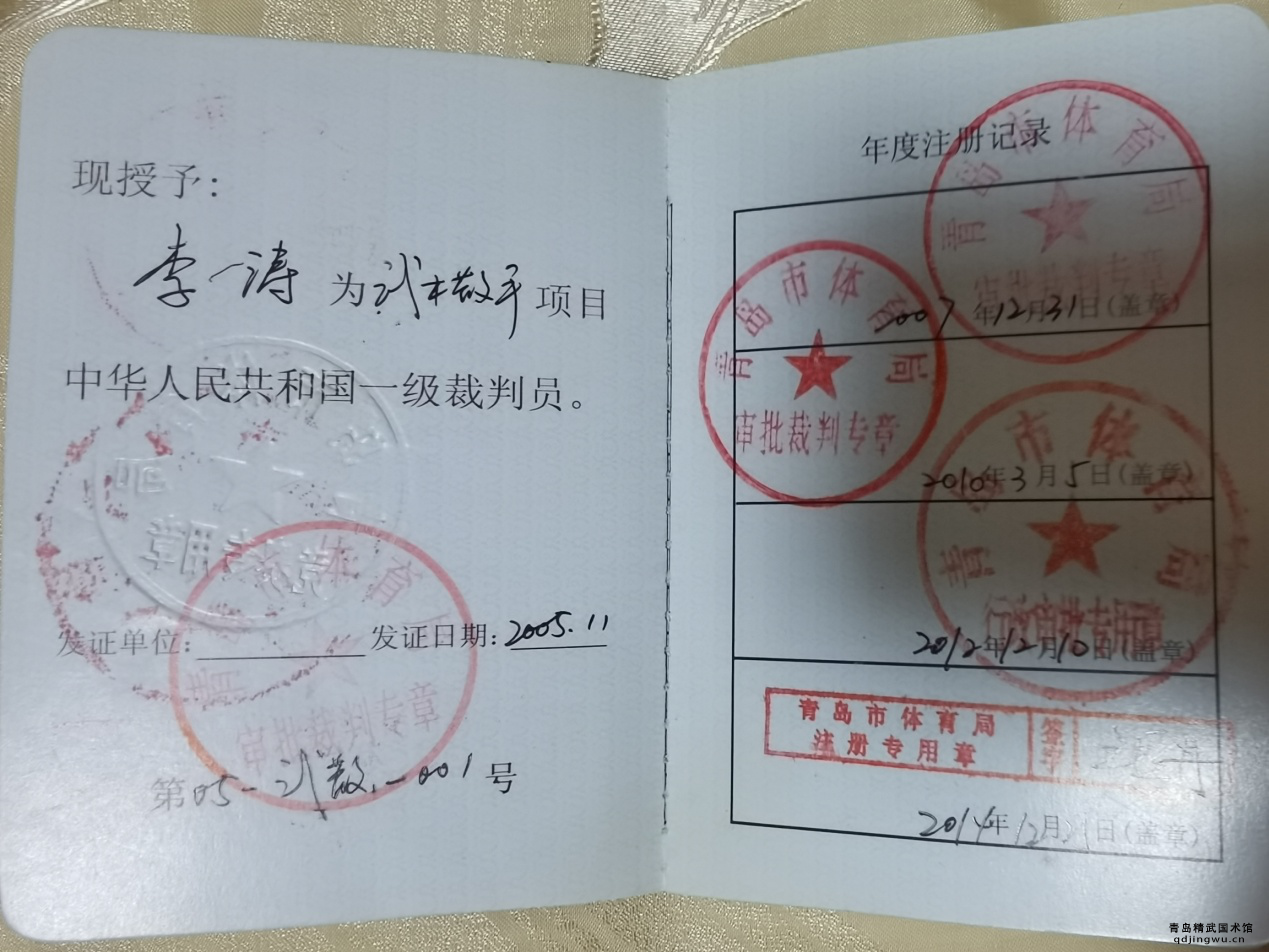 现授予：
李一涛 为武术散手项目
中华人民共和国一级裁判员。
专用章
发证单位： 发证日期：2005.11
青岛市体育局
审批裁判专章
第05-武散-001号
年度注册记录
青岛市体育局
审批裁判专章
2007年12月31日（盖章）
青岛市体育局
审批裁判专章
2010年3月5日（盖章）
青岛市体育局
2012年12月10日（盖章）
青岛市体育局
注册专用章
签字
2014年12月 日（盖章）
青岛精武国术馆
qdjingwu.cn